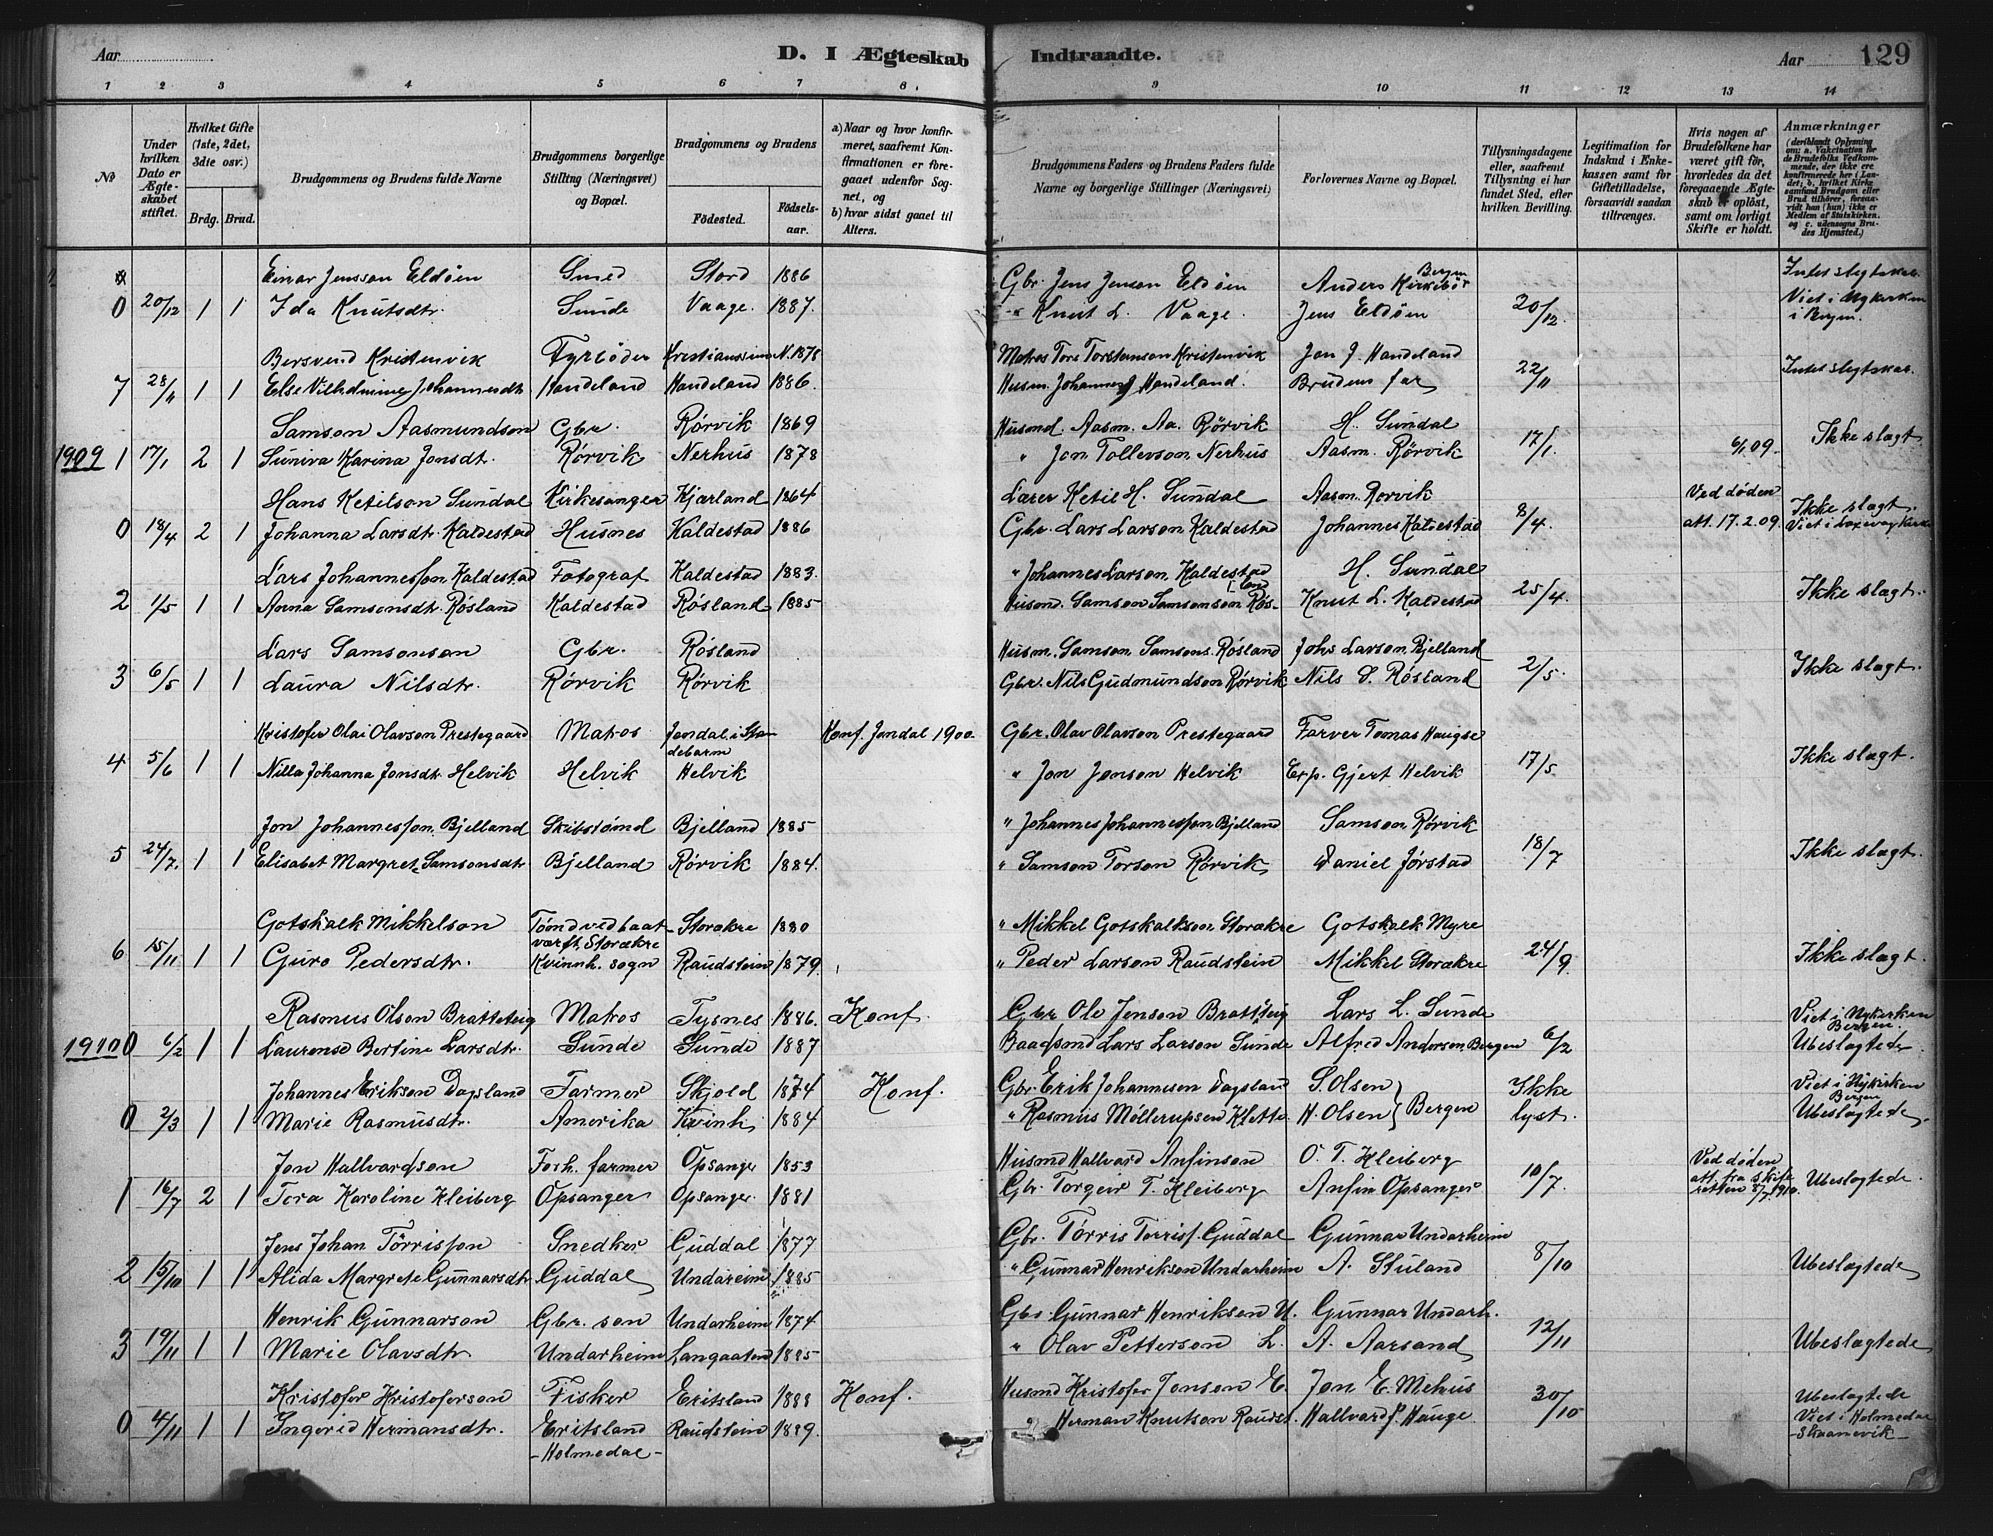 Aar
D. I Ægteskab Indtraadte.
Aar 129
1 2 3 4 5 6 7 8. 9 10 11 12 13 14
No
Under hvilken Dato er Ægteskabet stiftet.
Hvilket Gifte (1ste, 2det, 3dte osv.)
Brdg. Brud.
Brudgommens og Brudens fulde Navne
Brudgommens borgerlige Stilling (Næringsvei) og Bopæl.
Brudgommens og Brudens
Födested. Födselsaar.
a) Naar og hvor konfirmeret, saafremt Konfirmationen er foregaaet udenfor Sognet, og
b) hvor sidst gaaet til Alters.
Brudgommens Faders og Brudens Faders fulde Navne og borgerlige Stillinger (Næringsvei)
Forlovernes Navne og Bopæl.
Tillysningsdagene eller, saafremt Tillysning ei har fundet Sted, efter hvilken Bevilling.
Legitimation for Indskud i Enkekassen samt for Giftetilladelse, forsaavidt saadan tiltrænges.
Hvis nogen af Brudefolkene har været gift för, hvorledes da det foregaaende Ægteskab er oplöst, samt om lovligt Skifte er holdt.
Anmærkninger (deriblandt Oplysning om: a. Vakcination for de Brudefolks Vedkommende, der ikke ere konfirmerede her i Landet; b. hvilket Kirkesamfund Brudgom eller Brud tilhörer, forsaavidt han (hun) ikke er Medlem af Statskirken, og c. udensogns Brudes Hjemsted.)
Einar Jensson Eldøen Smed Stord 1886 Gbr. Jens Jenson Eldøen Anders Kirkebør Bergen Intet slegtskab.
0 20/12 1 1 Ida Knutsdtr. Sunde Vaage. 1887. " Knut L. Vaage. Jens Eldøen 20/12. Viet i Nykirken i Bergen.
Bersvend Kristenvik Fyrbøder Kristianssund N. 1878 Matros Tore Torstensen Kristenvik Jon J. Handeland Intet slegtskab.
7 28/11 1 1 Else Vilhelmine Johannesdtr. Handeland Handeland 1886. Husm. Johannes J Handeland. Brudens far 22/11
Samson Aasmundson Gbr. Rørvik 1869 Husmd. Aasm. Aa. Rørvik H. Sundal
1909 1 17/1 2 1 Suniva Karina Jonsdtr. Rørvik Nerhus 1878 " Jon Tollevson Nerhus Aasm. Rørvik 17/1. 6/1 09. Ikke slægt.
Hans Ketilson Sundal Kirkesanger Kjærland 1864 Lærer Ketil H. Sundal Aasm. Rørvik Ved døden Ikke slægt.
0 18/4 2 1 Johanna Larsdtr. Kaldestad Husnes Kaldestad 1886 Gbr. Lars Larson Kaldestad Johannes Kaldestad 8/4. att. 17.2.09. Viet i Laxevag Kirke
Lars Johannesson Kaldestad Fotograf Kaldestad 1883. " Johannes Larson Kaldestad H. Sundal
2 1/5 1 1 Anna Samsonsdtr. Røsland Kaldestad Røsland 1885 Husmd. Samson Samsonson Røsland Knut L. Kaldestad 25/4. Ikke slægt.
Lars Samsonson Gbr. Røsland Husm. Samson Samsons. Røsland Johs Larson Bjelland
3 6/5 1 1 Laura Nilsdtr. Rørvik Rørvik Gbr. Nils Gudmundson Rørvik Nils S. Røsland 2/5. Ikke slægt.
Kristofer Olai Olavson Prestegaard Matros Jondal i Strandebarm Konf. Jondal 1900. Gbr. Olav Olavson Prestegaard Farver Tomas Haugse
4 5/6 1 1 Nilla Johanna Jonsdtr. Helvik Helvik Helvik " Jon Jonson Helvik Exp. Gjert Helvik 17/5. Ikke slægt.
Jon Johannesson Bjelland Skibstømd Bjelland 1885 " Johannes Johannesson Bjelland Samson Rørvik
5 24/7. 1 1 Elisabet Margrete Samsonsdtr Bjelland Rørvik 1884. " Samson Torson Rørvik Daniel Jørstad 18/7 Ikke slægt.
Gotskalk Mikkelson Tømd ved baatværft. Storakre Storakre 1880 " Mikkel Gotskalkson Storakre Gotskalk Myre
6 15/11 1 1 Guro Pedersdtr. Kvinnh. sogn Raudstein 1879. " Peder Larson Raudstein Mikkel Storakre 24/9. Ikke slægt.
Rasmus Olson Bratteteig Matros Tysnes 1886. Konf. Gbr Ole Jenson Bratteteig Lars L. Sunde Viet i Nykirken Bergen.
1910 0 6/2 1 1 Laurense Bertine Larsdtr. Sunde Sunde 1887 Baadsmd Lars Larson Sunde Alfred Anderson Bergen 6/2 Ubeslægtede.
Johannes Erikson Dagsland Farmer Skjold 1874 Konf. Gbr. Erik Johannesen Dagsland S. Olsen Ikke Viet i Nykirken Bergen
0 2/3 1 1 Marie Rasmusdtr. Amerika Kvinh. 1884 " Rasmus Möllerupsen Klette. H. Olsen } Bergen lyst. Ubeslægtede
Jon Hallvardson Forh. farmer Opsanger 1853 Husmd Hallvard Anfinson O. T. Kleiberg Ved døden
1 16/7 2 1 Tora Karoline Kleiberg Opsanger Opsanger 1881 Gbr. Torgeir T. Kleiberg Anfin Opsanger 10/7. att. fra skifteretten 8/7 1910. Ubeslægtede.
Jens Johan Törrisson Snedker Guddal 1877 Gbr. Törris Torriss. Guddal Gunnar Undarheim
2 15/10 1 1 Alida Margrete Gunnarsdtr. Guddal Undareim 1885 " Gunnar Henrikson Undarheim A. Stuland 8/10 Ubeslægtede
Henrik Gunnarson Gbr. søn Undarheim 1874 Gbr. Gunnar Henrikson U. Gunnar Undarh.
3 19/11 1 1 Marie Olavsdtr. Undarheim Langaaten 1885 " Olav Petterson L. A. Aarsand 12/11 Ubeslægtede
Kristofer Kristoferson Fisker Eritsland 1888 Konf. Husmd Kristofer Jonson E. Jon E. Mehus Ubeslægtede
0 4/11 1 1 Ingerid Hermansdtr. Eritsland Raudstein 1889. " Herman Knutson Raudst. Hallvard P. Hauge 30/10 Viet i Holmedal
-Holmedal- -Skaanevik-